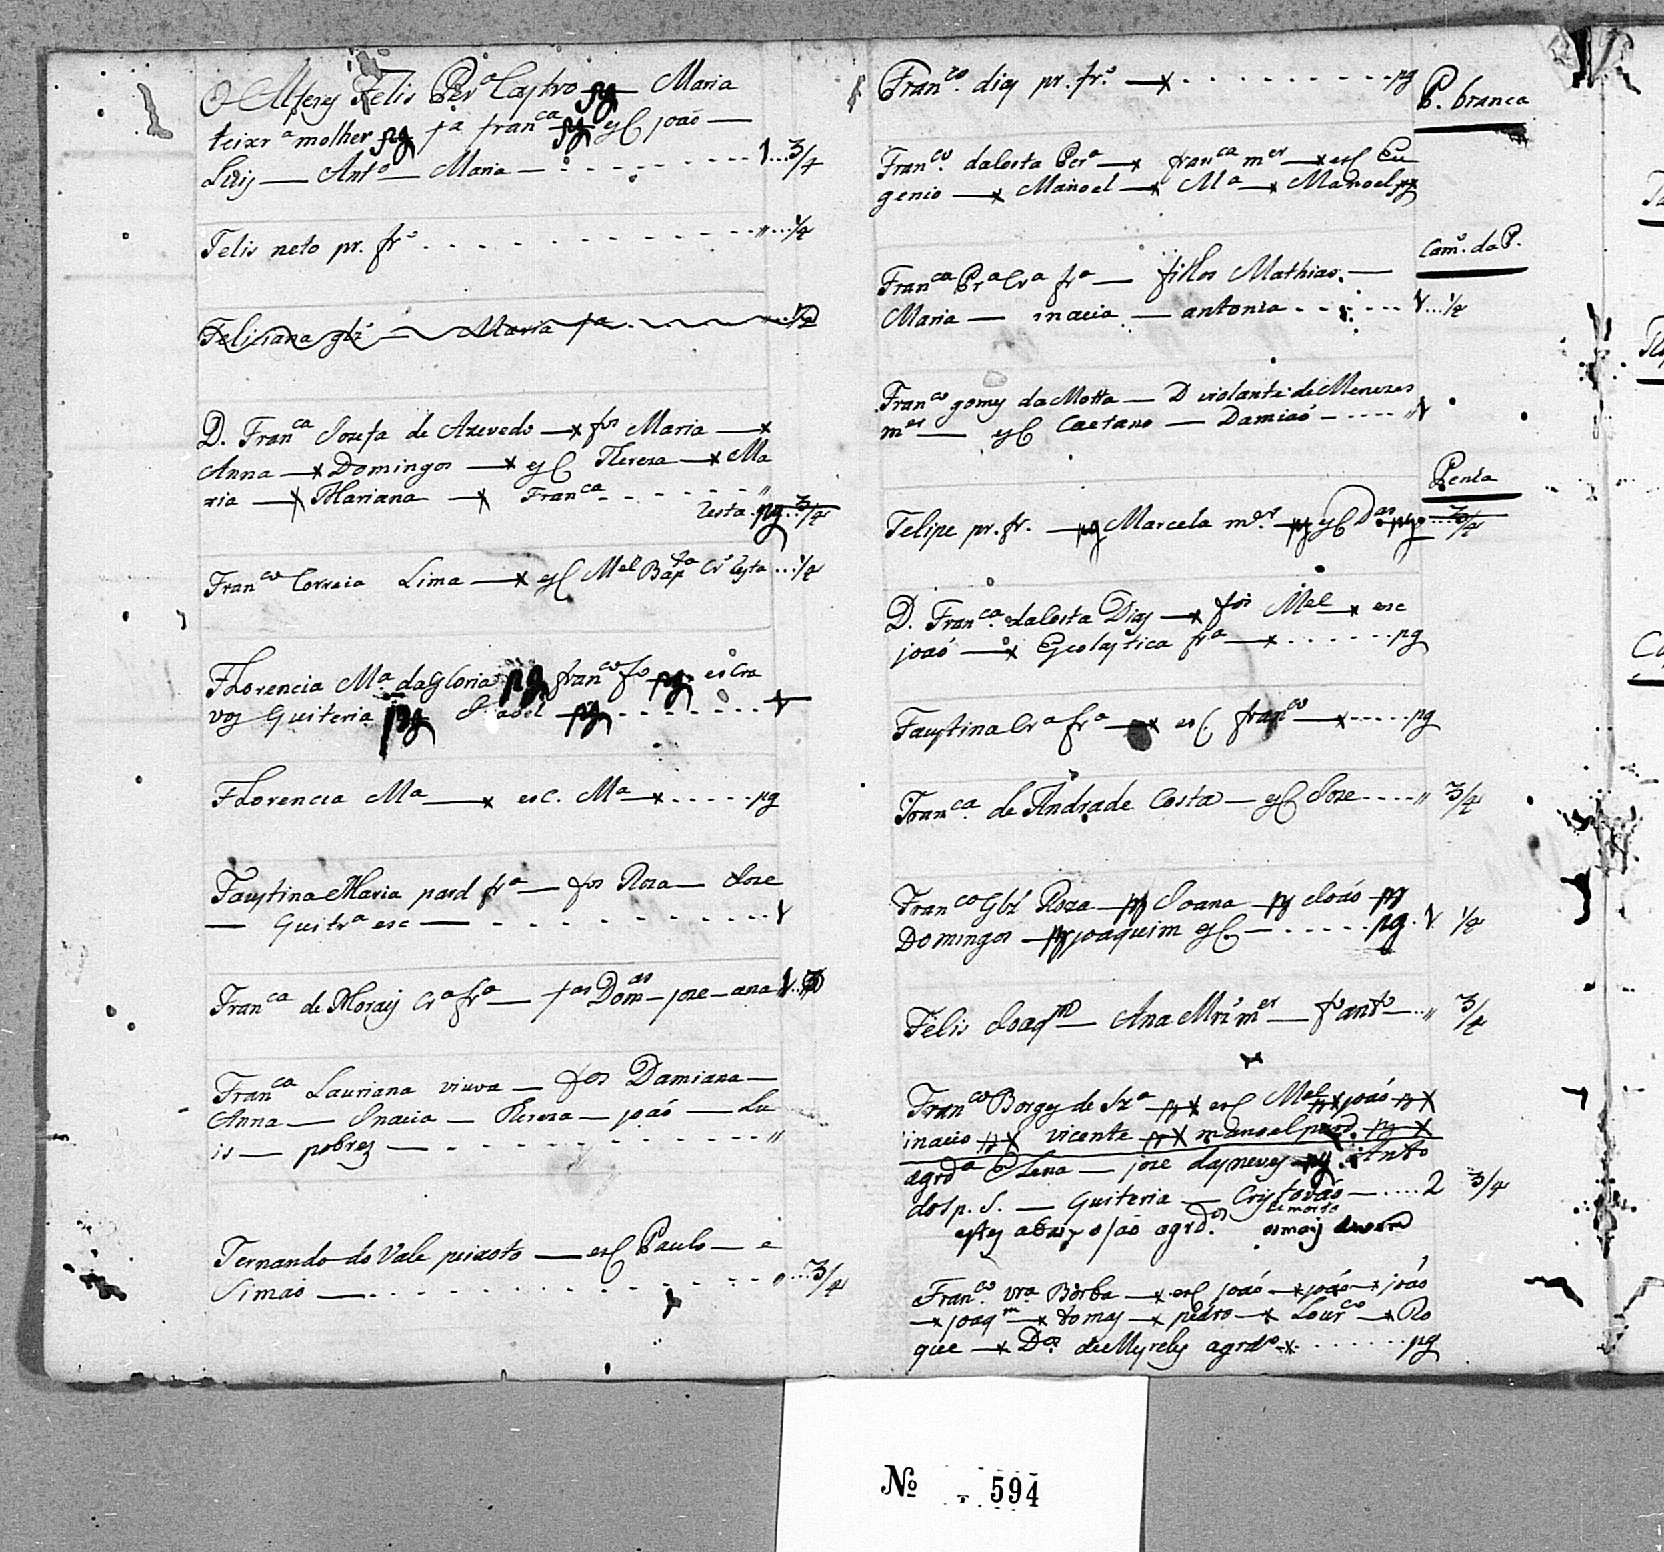 O Alferes Felis Per.ª Castro pg — Maria
teixr.ª molher pg fª franca pg esC joaó —
Luis — Antº — Maria — . - - - - - 1...3/4
Felis neto pr. frº . . . . . . . . . . . " ...1/4
Feliciana glz — Maria fª . . . . . ...1/2
D. Franca Jozefa de Azevedo —x fos Maria —x
Anna —x Domingos —x esC Thereza —x Ma
ria —x Mariana —x Franca - - - - - - "
resta . pg ..3/4
Franco Correia Lima —x esC Mel Bapta Crº resta ...1/4
Florencia Ma da Gloria pg franco fº pg escra
vos Quiteria pg Izabel pg - - - - - - 1
Florencia Ma —x esc. Ma —x . . . . . pg
Faustina Maria pard frª — fos Roza — Joze
— Quitrª esc — - - - - - - - - - - 1
Franca de Morais Crª frª — fos Domos — joze — ana 1...3
Franca Lauriana viuva — fos Damiana —
Anna — Inacia — Thereza — joaó — Lu
is — pobrez — - - - - - - - - - - "
Fernando do Vale peixoto — esC Paulo — e
Simaó — . . . . . . . . . . . " ...3/4
Franco. dias pr. frº —x . . . . . . . . . . pg
P. branca
Franco. da Costa Perª —x franca mer —x esC Eu
genio —x Manoel —x Ma —x Manoel px
Camº. da P.
Franca Prª Crª frª — filhos Mathias —
Maria — inacia — antonia - - - - - 1...1/4
Franco gomes da Motta — D violante de Menezes
mer — esC Caetano — Damiaó - - - - - " 1
Penta
Felipe pr. fr. — pg Marcela mer — pg esC Dos pg ...3/4
D. Franca. da Costa Dias —x fos Mel —x esc
joaó —x Escolastica frª —x . . . . . . pg
Faustina Crª frª —x es C franco —x . . . . . pg
Franca. de Andrade Costa — esC Joze - - - - " 3/4
Franco Glz Roza — pg Joana — pg Joaó pg
Domingos — pg joaquim esC. — . . . . . pg . 1 1/2
Felis Joaqm — Ana Mrz mer — fº antº - .. " 3/4
Franco Borges de Sza pg x esC Mel pg x joaó pg x
inacio pg x vicente pg x manoel pard. pg x
agrda Elena — joze das neves pg Antº
dosp. S. — Quiteria — Cristovaó — ..... 2 3/4
estes abaixo saó agrdos.
Franco. vrª Borba —x esC joaó —x joaó —x joaó
—x joaqm —x tomas —x pedro —x Lourco —x Ro
que —x Dos de Myrelys agrdo —x . . . . . . . pg
Nº 594